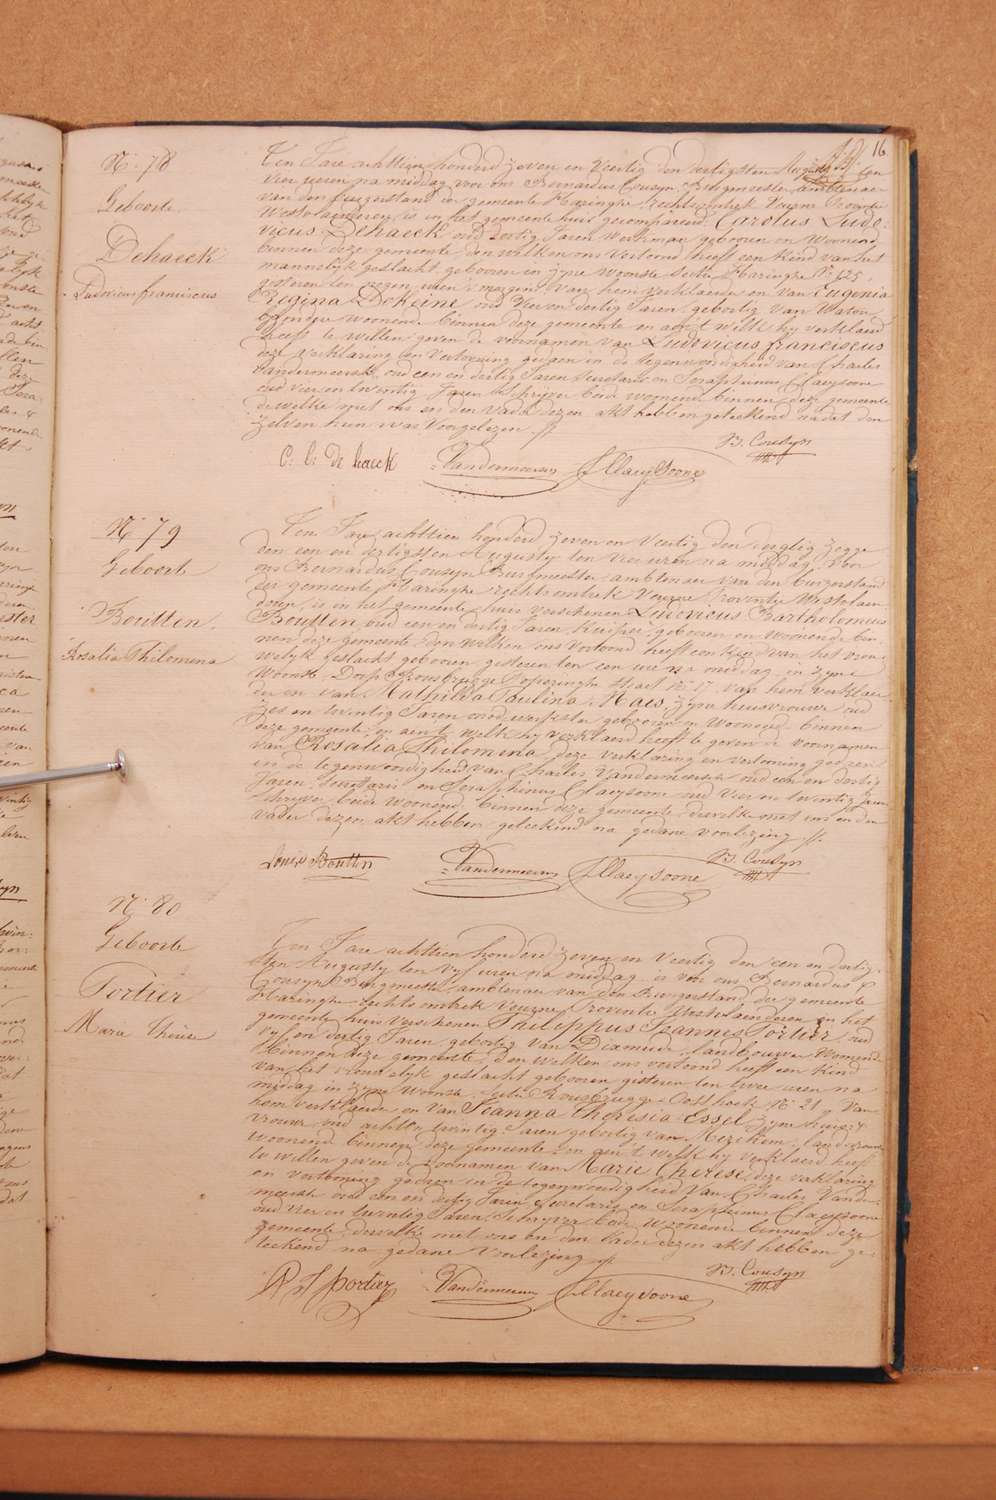 16
N.º 78
Geboorte
Dehaeck
Ludovicus franciscus
Ten Jare achttien honderd Zeven en Veertig den dertigsten Augusty ten
vier uren na middag voor ons Bernardus Cousyn Burgmeester ambtenaer
van den burgerstand der gemeente Haringhe, rechtsomtrek Veurne Provintie
Westvlaenderen, is in het gemeente huis gecompareerd Carolus Ludo-
vicus Dehaeck oud dertig Jaren Werkman geboren en Woonende
binnen deze gemeente den welken ons vertoond heeft een kind van het
mannelyk geslacht geboren in zyne Woonste Sectie Haringhe Nº 125
gisteren ten negen uren 's morgens van hem verklaerder en van Eugenia
Regina Dekeine oud Vier en dertig Jaren geboortig van Watou
woonende binnen deze gemeente en aen 't welk hy verklaerd
heeft te willen geven de voornamen van Ludovicus franciscus
deze verklaring en Vertooning gedaen in de tegenwoordigheid van Charles
Vandermeersch oud een en dertig Jaren Secretaris en Seraphinus Claeysoone
oud vier en twintig Jaren Schryver beide woonende binnen deze gemeente
dewelke met ons en den Vader dezen akt hebben geteekend nadat den
zelven hun was Voorgelezen.
C. L. De haeck Vandermeersch S Claeysoone B. Cousyn
N.º 79
Geboorte
Boutten
Rosalia Philomena
Ten Jare achttien honderd zeven en Veertig den dertig zegge
den een en dertigsten Augusty ten vier uren na middag, Voor
ons Bernardus Cousyn Burgmeester ambtenaer van den burgerstand
der gemeente Haringhe rechtsomtrek Veurne Provintie Westvlaen-
deren, is in het gemeente huis verschenen Ludovicus Bartholomeus
Boutten oud een en dertig Jaren Kuiper geboren en Woonende bin-
nen deze gemeente den welken ons vertoond heeft een kind van het vrou-
welyk geslacht geboren gisteren ten een ure na middag in zyne
Woonste Dorp Rousbrugge Poperinghe straet Nº 17, van hem verklaer-
der en van Mathilda Paulina Maes zyne huisvrouwe oud
zes en twintig Jaren geboren en Woonende binnen
deze gemeente, en aen 't welk hy verklaerd heeft te geven de voornamen
van Rosalia Philomena deze verklaring en vertooning gedaen
in de tegenwoordigheid van Charles Vandermeersch oud een en dertig
Jaren Secretaris en Seraphinus Claeysoone oud Vier en twintig Jaren
schryver beide woonende binnen deze gemeente, dewelke met ons en den
vader dezen akt hebben geteekend na gedane voorlezing.
Louis Boutten Vandermeersch S Claeysoone B. Cousyn
N.º 80
Geboorte
Portier
Marie Therese
Ten Jare achttien honderd zeven en Veertig den een en dertig-
sten Augusty ten vyf uren na middag is voor ons Bernardus
Cousyn Burgmeester ambtenaer van den Burgerstand der gemeente
Haringhe rechtsomtrek Veurne Provintie Westvlaenderen in het
gemeente huis verschenen Philippus Joannes Portier oud
vyf en dertig Jaren geboortig van Dixmude landbouwer Woonende
binnen deze gemeente den welken ons vertoond heeft een kind
van het vrouwelyk geslacht geboren gisteren ten twee uren na
middag in zyne Woonste Sectie Rousbrugge Oosthoek Nº 21, Van
hem verklaerder en van Joanna Theresia Essel zyne huis-
vrouw oud acht en twintig Jaren geboortig van Merckem landbouwster
woonende binnen deze gemeente en aen 't welk hy verklaerd heeft
te willen geven de voornamen van Marie Therese, deze verklaring
en vertooning gedaen in de tegenwoordigheid van Charles Vander-
meersch oud een en dertig Jaren Secretaris en Seraphinus Claeysoone
oud vier en twintig Jaren Schryver beide woonende binnen deze
gemeente dewelke met ons en den Vader dezen akt hebben ge-
teekend na gedane Voorlezing
Ph J Portier Vandermeersch S Claeysoone B. Cousyn